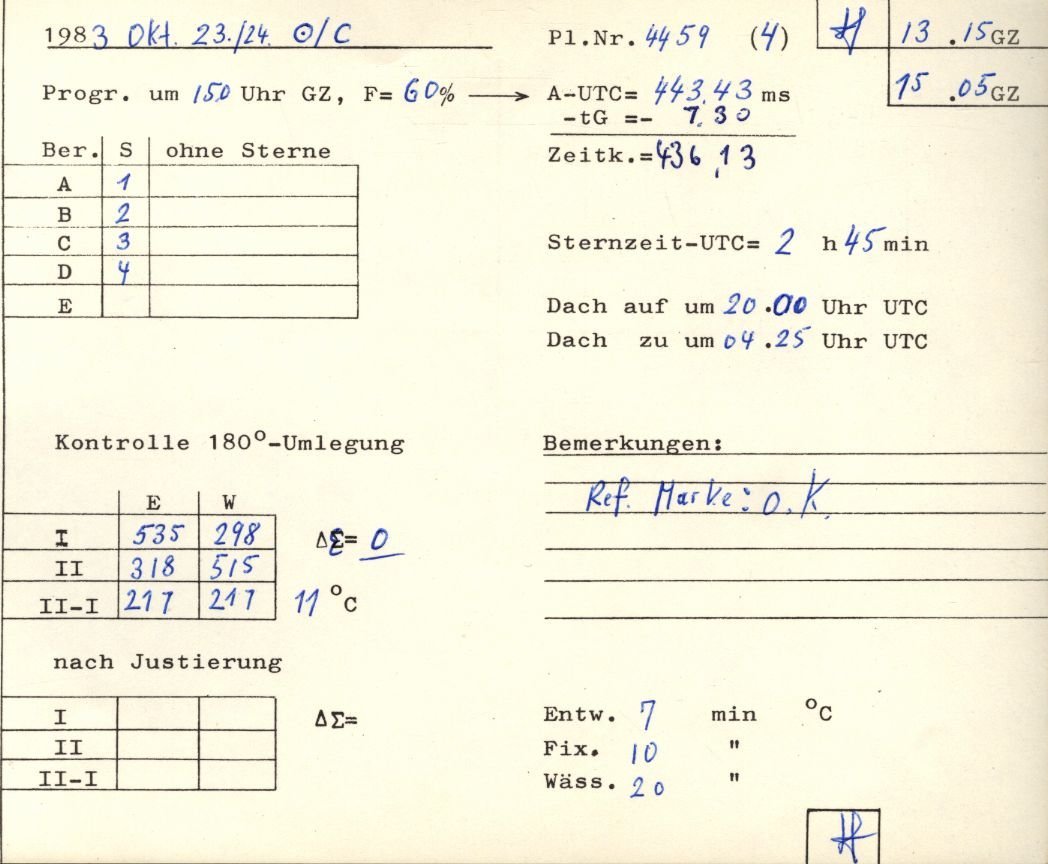 1983 Okt. 23./24. ⊙/C
Pl.Nr. 4459 (4)
13 .15 GZ
15 .05 GZ
Progr. um 150 Uhr GZ, F= 60% → A-UTC= 443.43 ms
-tG =- 7.30
Zeitk.= 436,13
Ber. S ohne Sterne
A 1
B 2
C 3
D 4
E
Sternzeit-UTC= 2 h 45 min
Dach auf um 20.00 Uhr UTC
Dach zu um 04.25 Uhr UTC
Kontrolle 180°-Umlegung
E W
I 535 298 ΔΣ= 0
II 318 515
II-I 217 217 11 °C
Bemerkungen:
Ref. Marke: O.K.
nach Justierung
I ΔΣ=
II
II-I
Entw. 7 min °C
Fix. 10 "
Wäss. 20 "